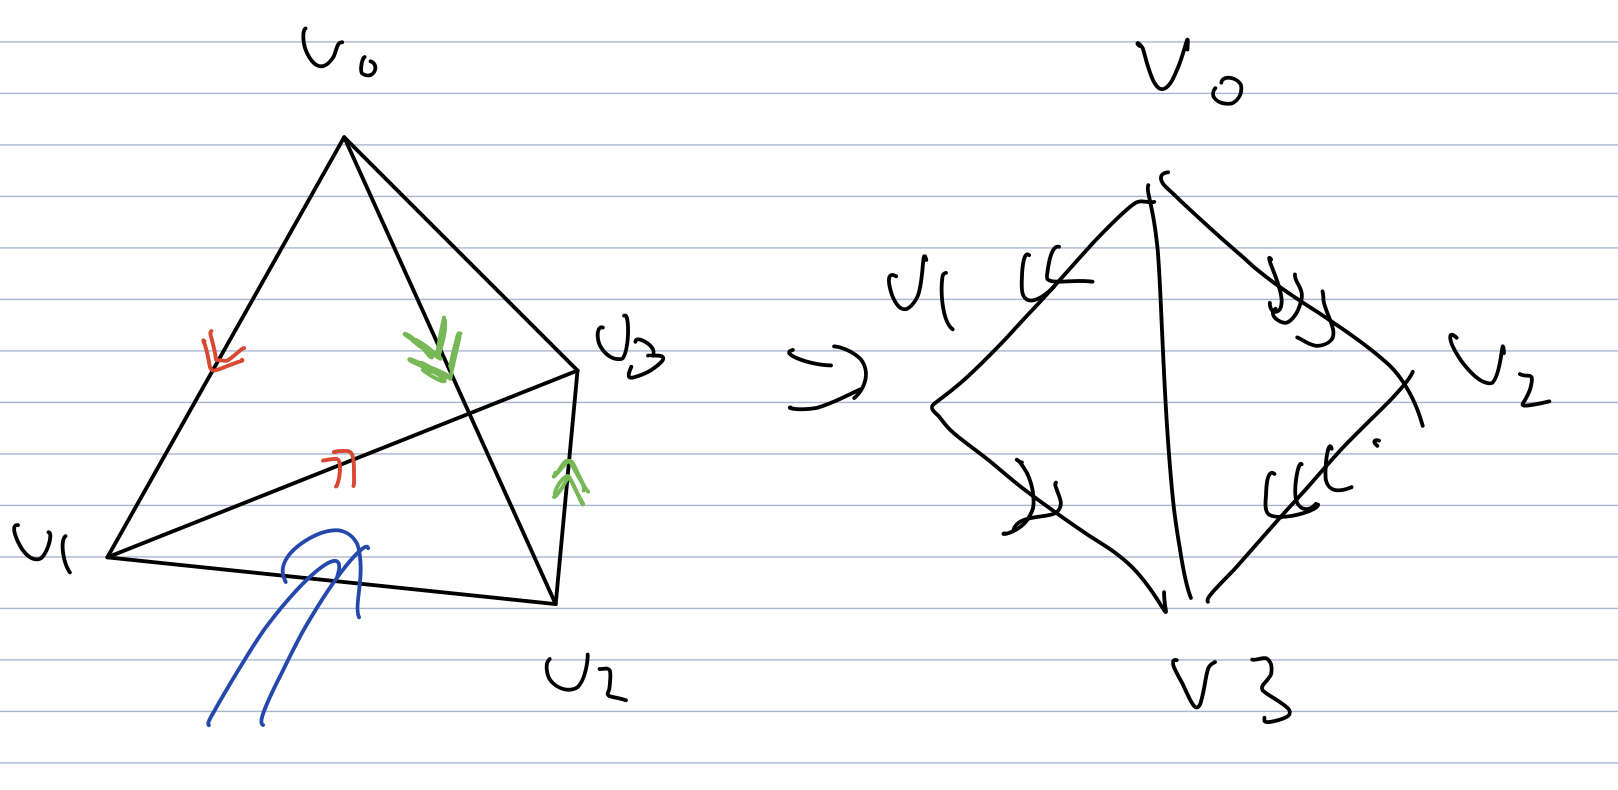 V0
V0
V1
V3
V2
V1
V2
V3